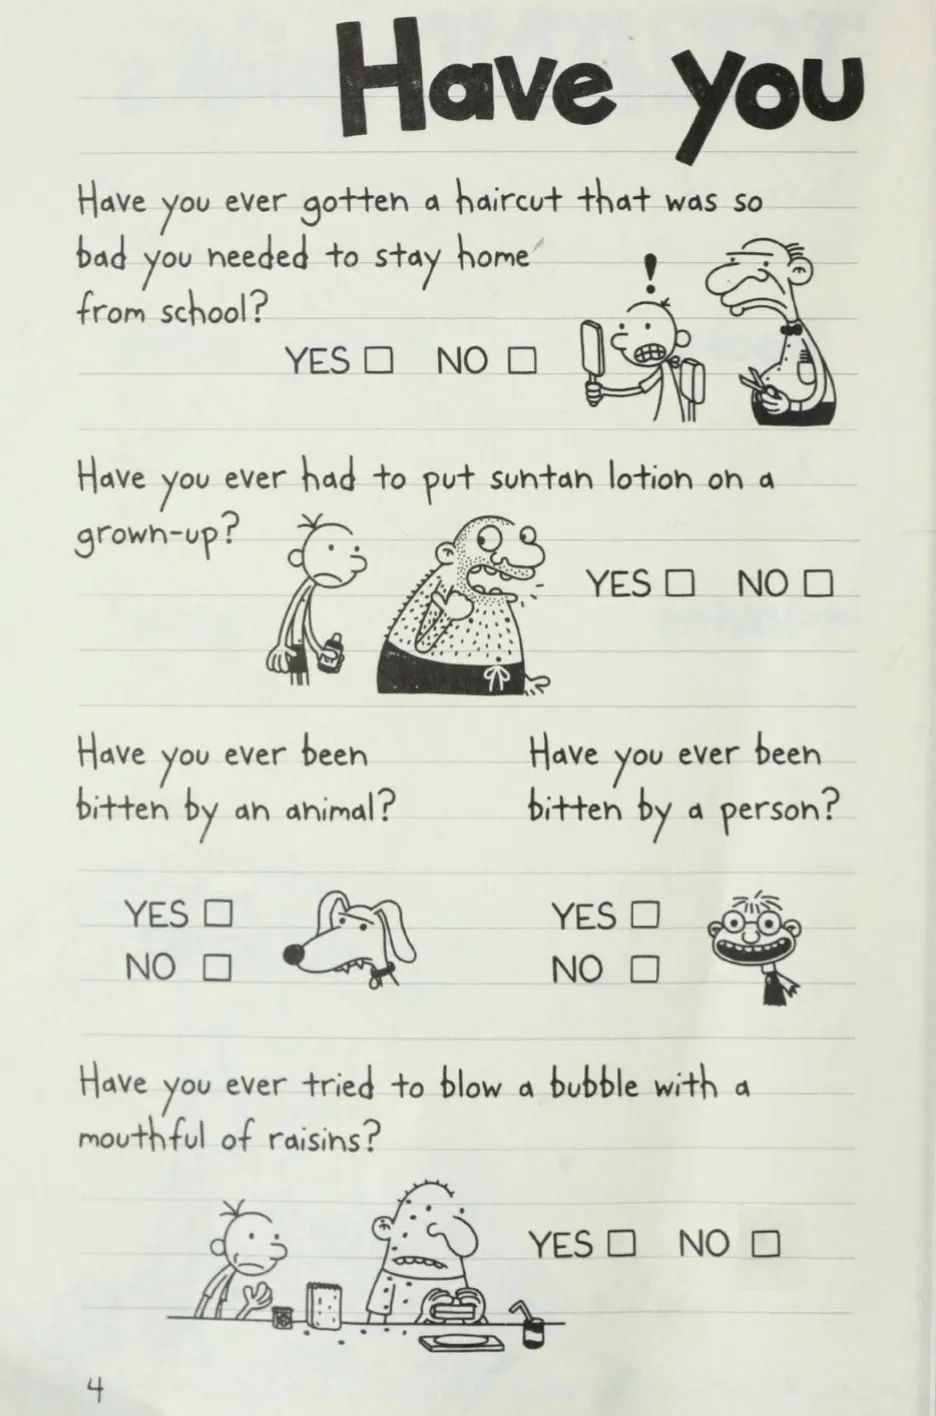 Have you
Have you ever gotten a haircut that was so
bad you needed to stay home
from school?
YES NO
!
Have you ever had to put suntan lotion on a
grown-up?
YES NO
Have you ever been
bitten by an animal?
YES
NO
Have you ever been
bitten by a person?
YES
NO
Have you ever tried to blow a bubble with a
mouthful of raisins?
YES NO
4